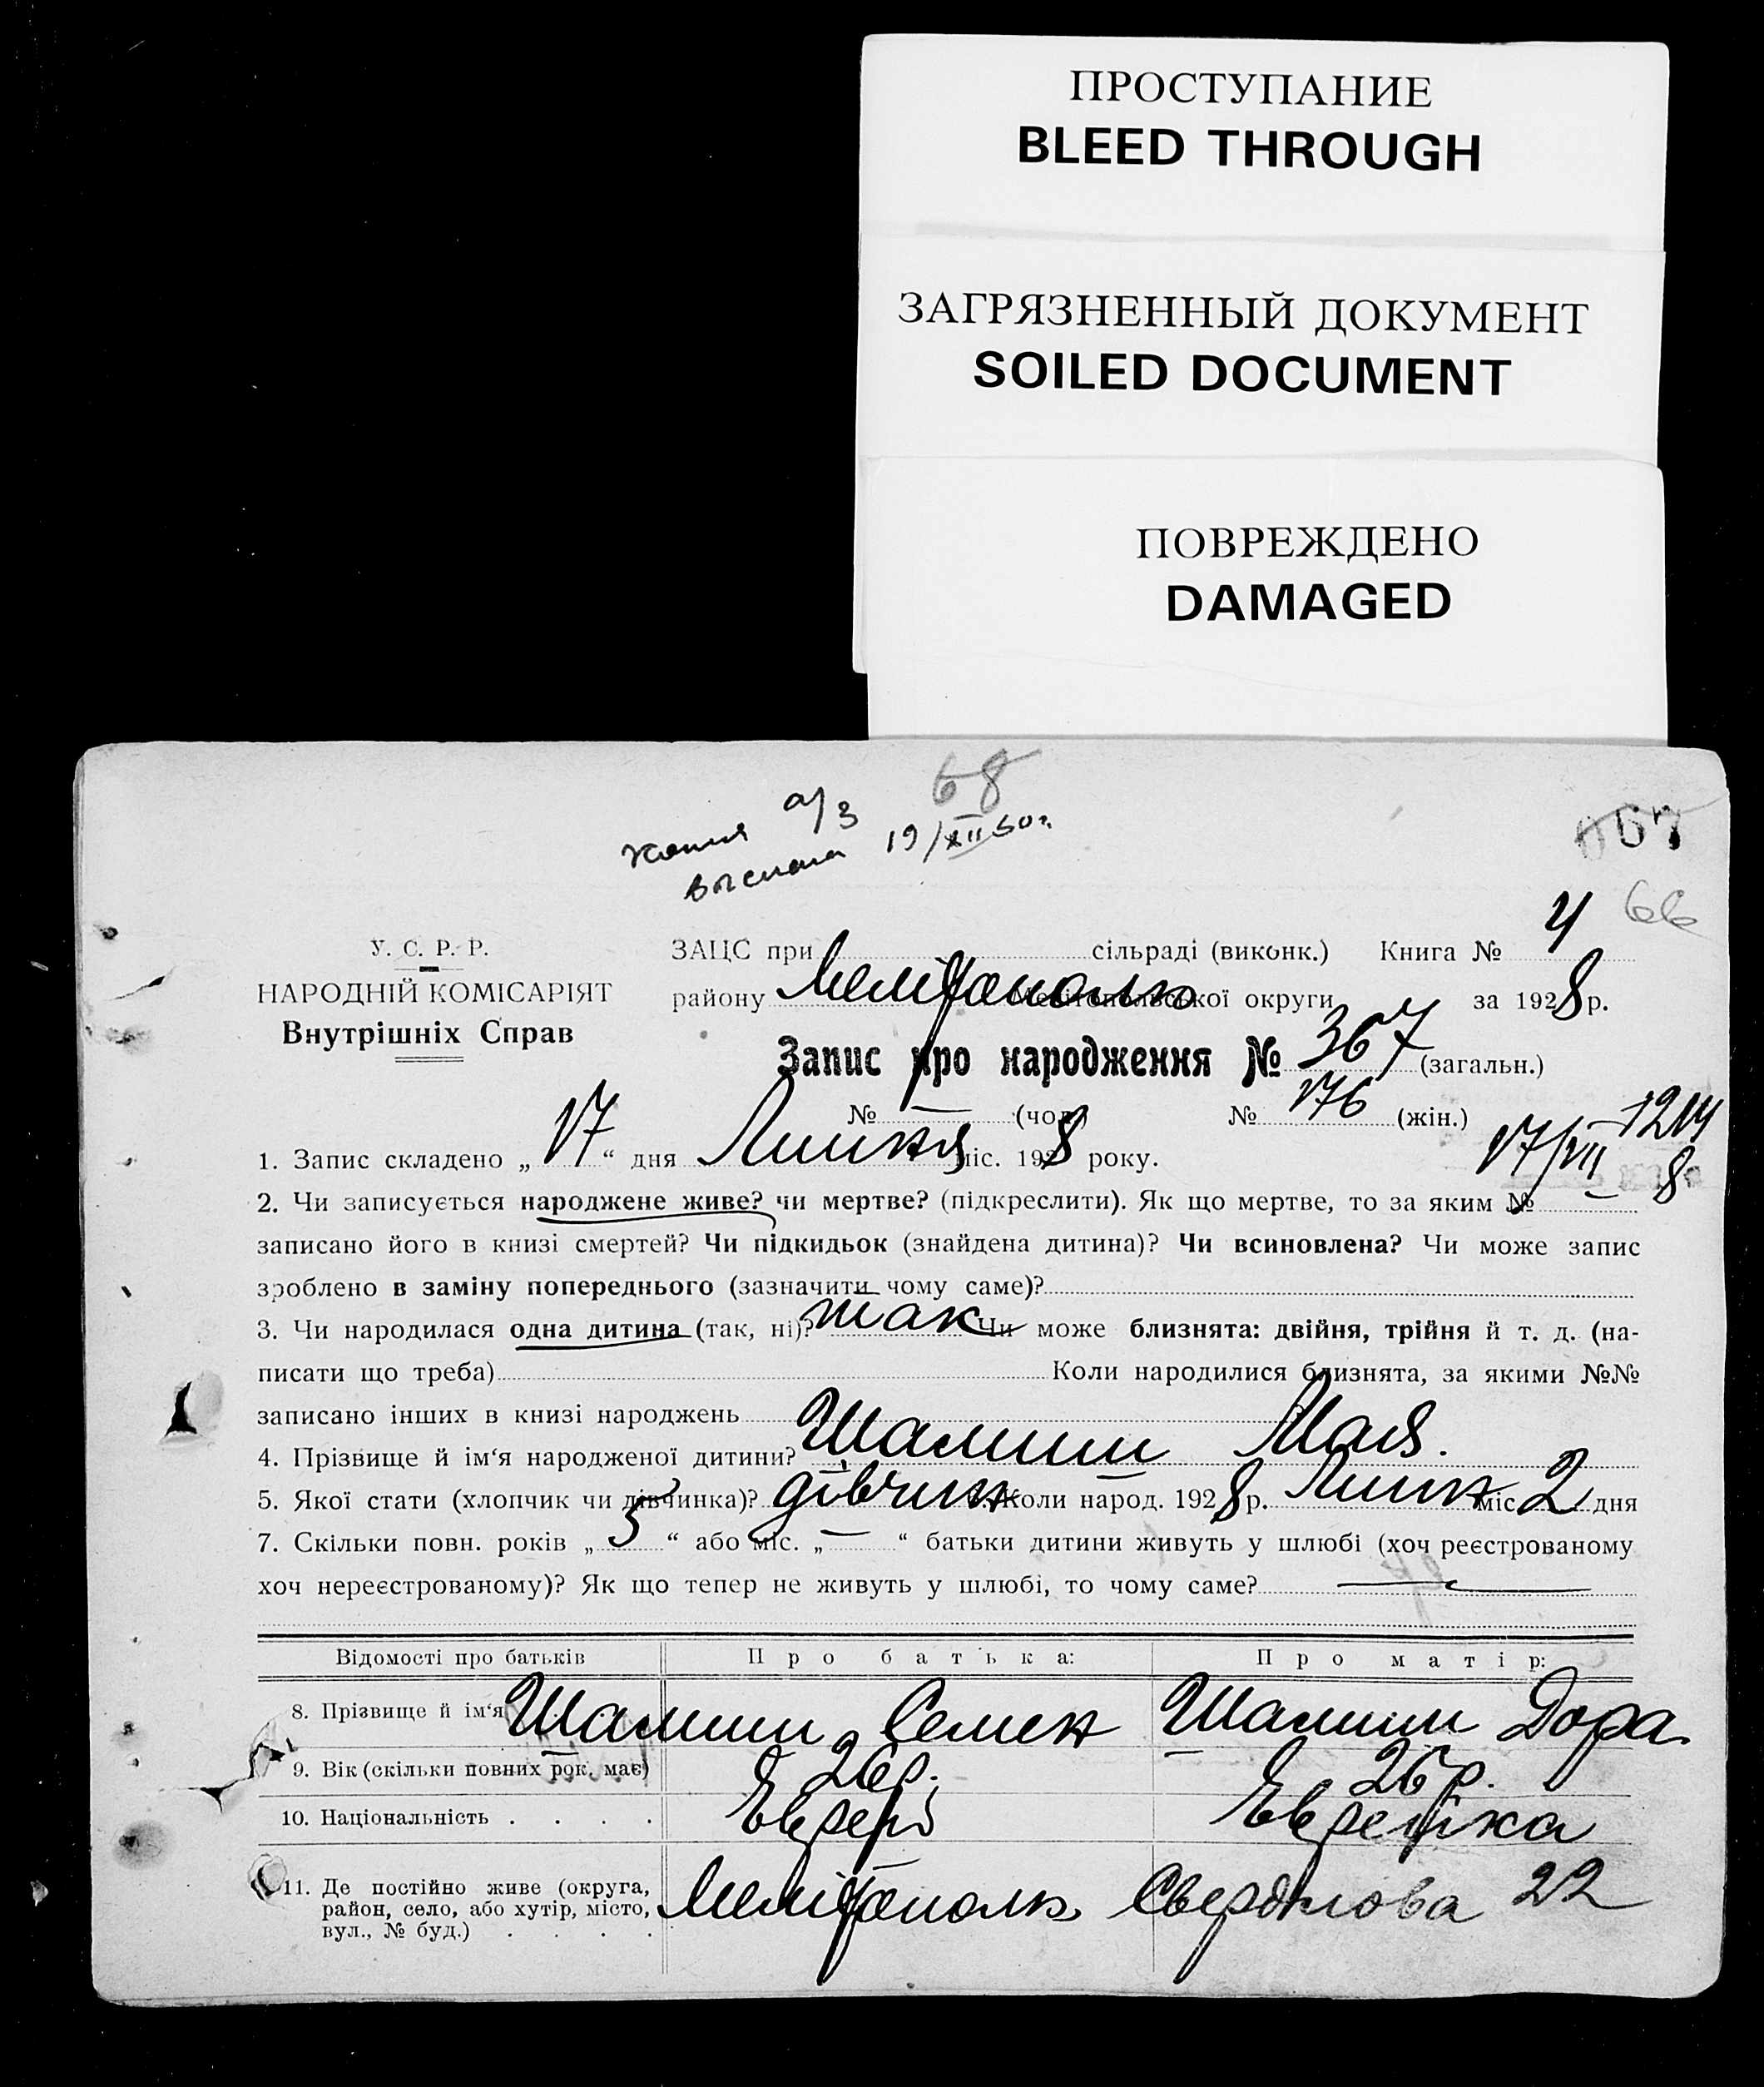 ПРОСТУПАНИЕ
BLEED THROUGH
ЗАГРЯЗНЕННЫЙ ДОКУМЕНТ
SOILED DOCUMENT
ПОВРЕЖДЕНО
DAMAGED
68
копия а/з
выслана 19/XII 50 г.
057
66
У. С. Р. Р.
НАРОДНІЙ КОМІСАРІЯТ
Внутрішніх Справ
ЗАЦС при сільраді (виконк.) Книга № 4
району Мелітополь Мелітопольської округи за 1928 р.
Запис про народження № 367 (загальн.)
№ — (чол.) № 176 (жін.)
1214
17/VII 8
1. Запис складено „17“ дня Липня міс. 1928 року.
2. Чи записується народжене живе? чи мертве? (підкреслити). Як що мертве, то за яким № —
записано його в книзі смертей? Чи підкидьок (знайдена дитина)? Чи всиновлена? Чи може запис
зроблено в заміну попереднього (зазначити чому саме)?
3. Чи народилася одна дитина (так, ні)? так Чи може близнята: двійня, трійня й т. д. (на-
писати що треба) Коли народилися близнята, за якими №№
записано інших в книзі народжень
4. Прізвище й ім‘я народженої дитини? Шамиш Мая.
5. Якої стати (хлопчик чи дівчинка)? дівчинк Коли народ. 1928 р. Липня міс. 2 дня
7. Скільки повн. років „5“ або міс. „—“ батьки дитини живуть у шлюбі (хоч реєстрованому
хоч нереєстрованому)? Як що тепер не живуть у шлюбі, то чому саме? —
Відомості про батьків Про батька: Про матір:
8. Прізвище й ім‘я Шамиш Семен Шамиш Дора
9. Вік (скільки повних рок. має) 26 р. 26 р.
10. Національність . . . . Еврей Еврейка
11. Де постійно живе (округа,
район, село, або хутір, місто,
вул., № буд.) . . . .
Мелітополь Свердлова 22